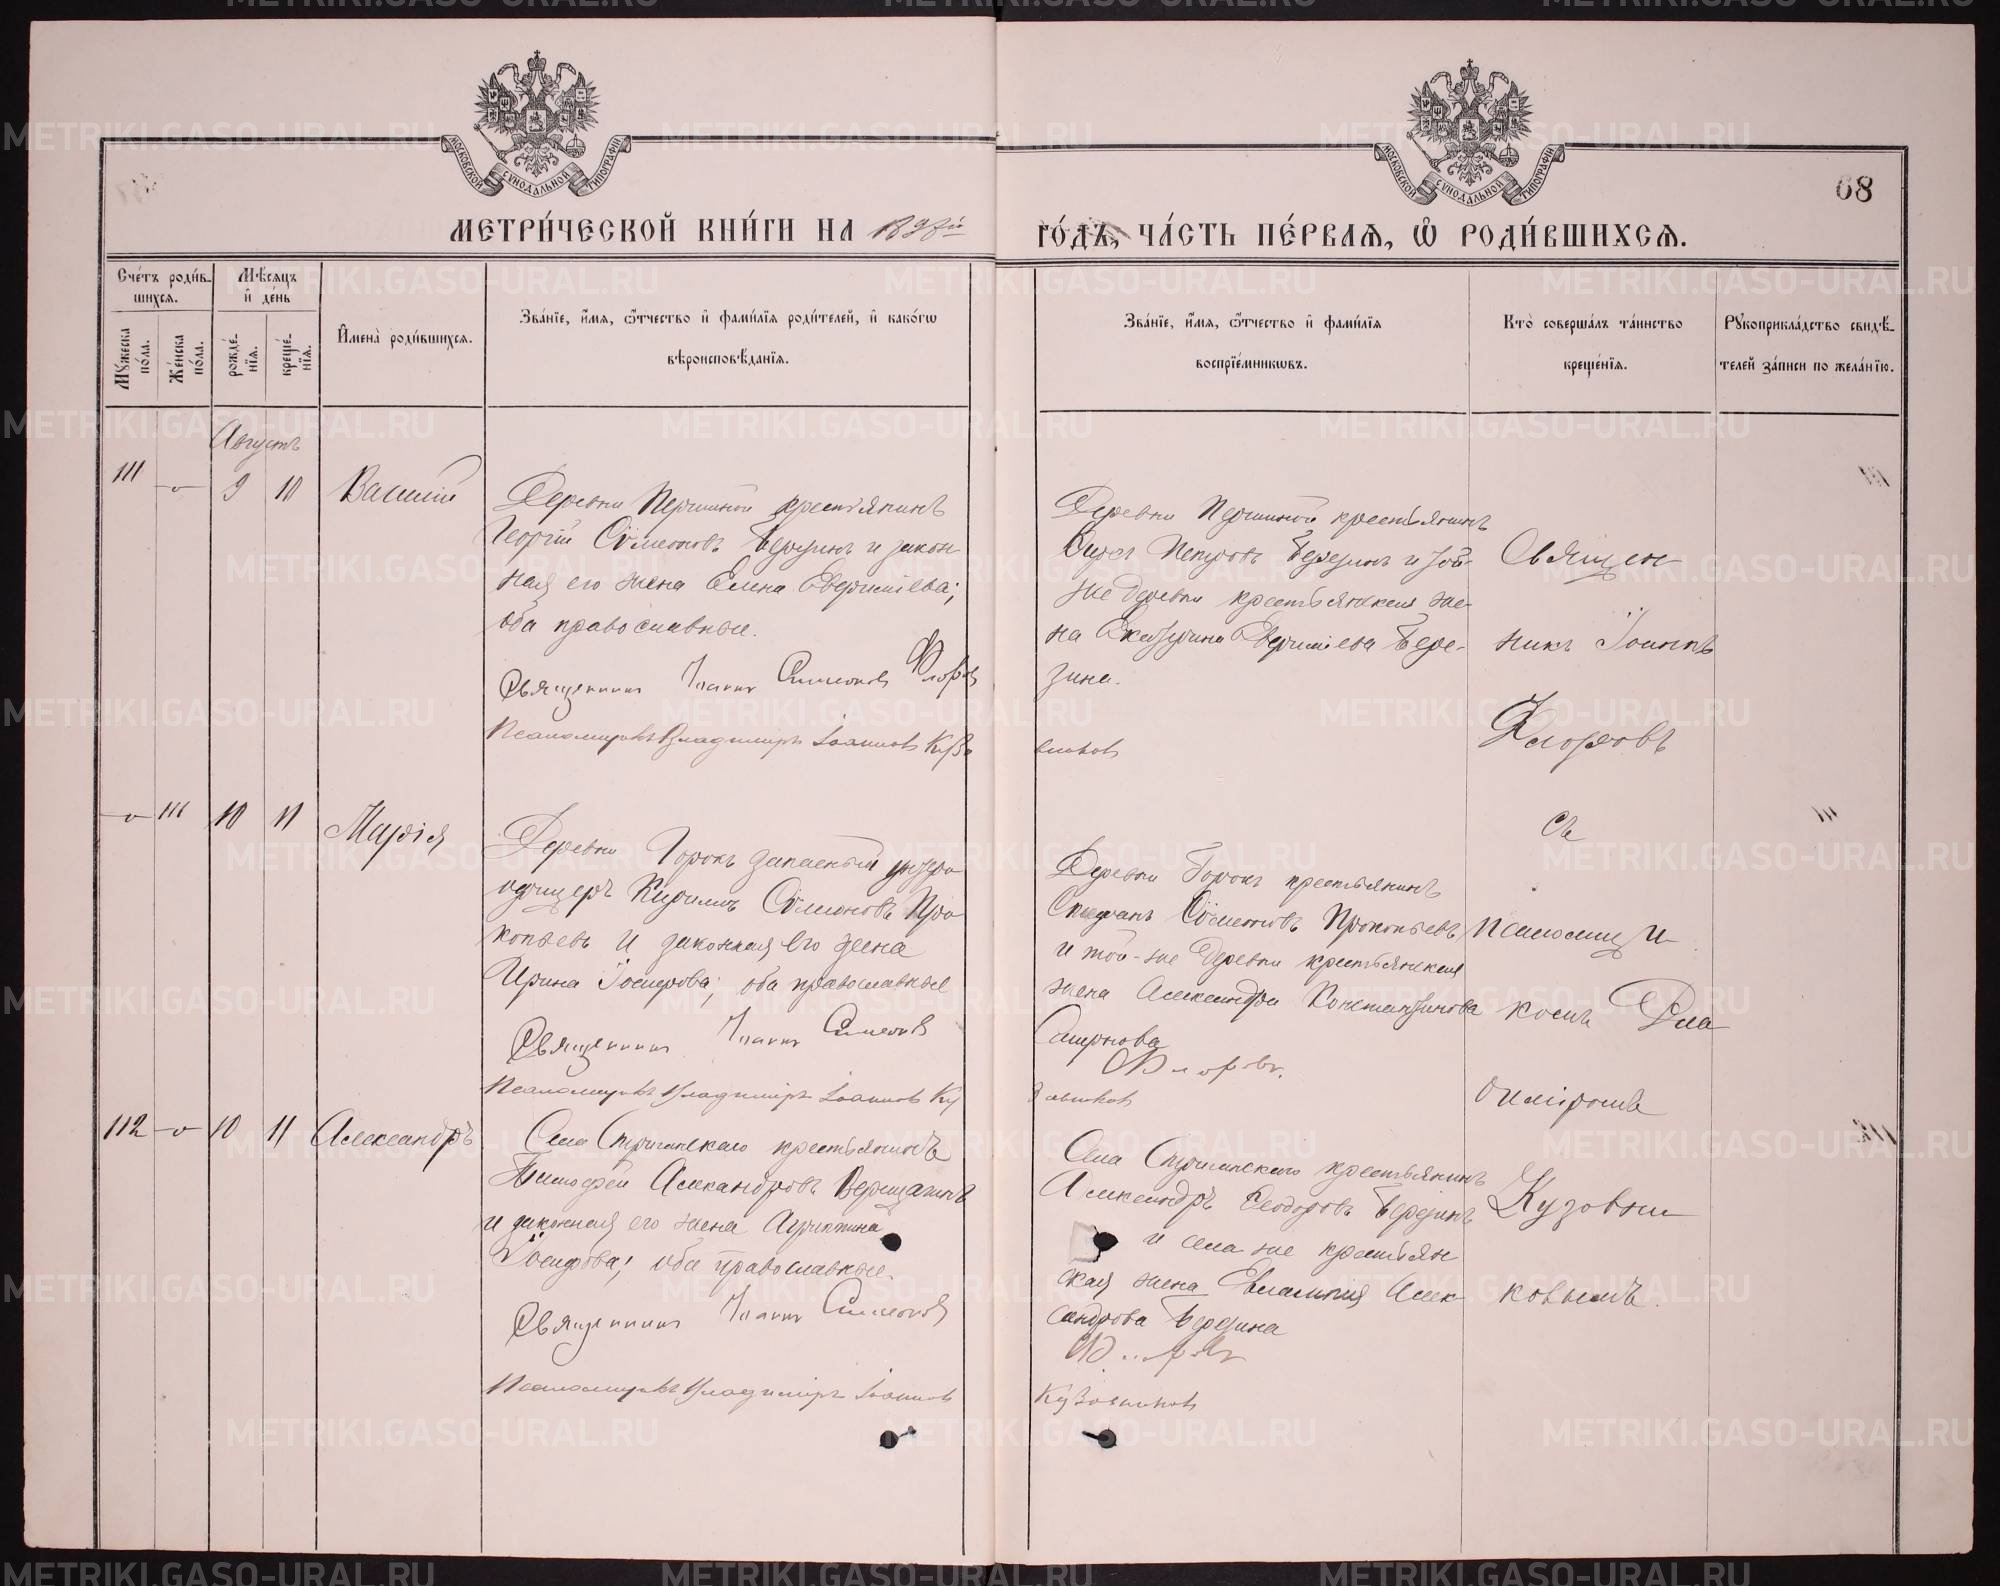 МОСКОВСКОЙ СУНОДАЛЬНОЙ ТИПОГРАФІИ
МОСКОВСКОЙ СУНОДАЛЬНОЙ ТИПОГРАФІИ
68
МЕТРИ́ЧЕСКОЙ КНИ́ГИ НА
ГО́ДЪ, ЧА́СТЬ ПЕ́РВАѦ, Ѡ҆ РОДИ́ВШИХСѦ.
Сче́тъ роди́в-
шихсѧ.
Мѣ́сѧцъ
и҆ де́нь
Мꙋ́жеска по́ла.
Же́нска по́ла.
рожде́-
нїѧ.
креще́-
нїѧ.
И҆мена̀ роди́вшихсѧ.
Зва́нїе, и҆́мѧ, ѻ҆́тчество и҆ фами́лїѧ роди́телей, и҆ како́гѡ
вѣроисповѣ́данїѧ.
Зва́нїе, и҆́мѧ, ѻ҆́тчество и҆ фами́лїѧ
воспрїе́мникѡвъ.
Кто̀ соверша́лъ та́инство
креще́нїѧ.
Рꙋкоприкла́дство свидѣ́-
телей за́писи по жела́нїю.
Августъ
111 — 9 10 Василій
Деревни Першиной крестьянинъ
Георгій Сѵмеоновъ Березинъ и закон
ная его жена Елена Евфиміева;
оба православные.
Священникъ Іоаннъ Симеоновъ Флоров
Псаломщикъ Владиміръ Іоанновъ Кузо
Деревни Першиной крестьянинъ
Петровъ Березинъ и той-
же деревни крестьянская же-
на Екатерина Евфиміева Бере-
зина.
вников
Священ
никъ Іоаннъ
Флоровъ
— 111 10 11 Марія
Деревни Горокъ запасный унтеръ
офицеръ Кириллъ Сѵмеоновъ Про
копьевъ и законная его жена
Ирина Іосифова; оба православные
Священникъ Іоаннъ Симеоновъ
Псаломщикъ Владиміръ Іоанновъ Ку
Деревни Горокъ крестьянинъ
Стефанъ Сѵмеоновъ Прокопьевъ
и той-же деревни крестьянская
жена Александра Константинова
Смирнова
Флоровъ.
зовников
съ
псаломщи
комъ Вла
диміромъ
112 — 10 11 Александръ
Села крестьянинъ
Тимофей Александровъ Верещагинъ
и законная его жена Агриппина
Іосифова; оба православные.
Священникъ Іоаннъ Симеоновъ
Псаломщикъ Владиміръ Іоанновъ
Села крестьянинъ
Александръ Ѳеодоровъ Березинъ
и села же крестьян
ская жена Евлампія Алек-
сандрова Березина
Флоровъ
Кузовников
Кузовни
ковымъ.
METRIKI.GASO-URAL.RU